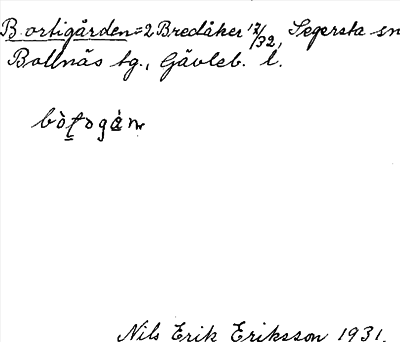 Bortigården=2 Bredåker 17/32, Segersta sn
Bollnäs tg., Gävleb. l.
Nils Erik Eriksson 1931.